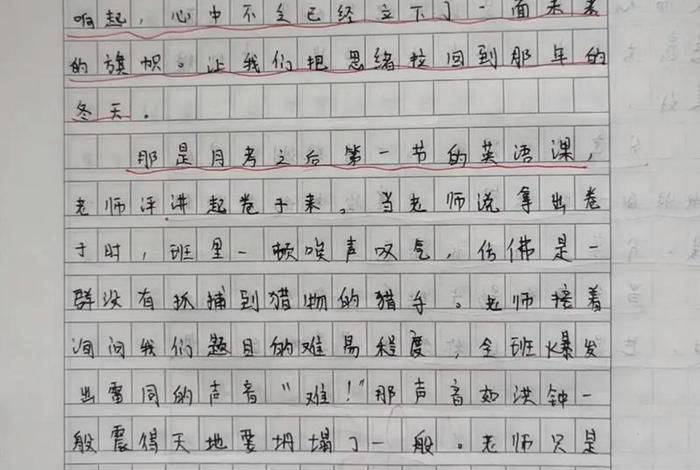 响起，心中不之已经立下了一面未来
的旗帜。让我们把思绪拉回到那年的
冬天。
那是月考之后第一节的英语课，
老师评讲起卷子来，当老师说拿出卷
子时，班里一顿唉声叹气，仿佛是一
群没有抓捕到猎物的猎手。老师接着
询问我们题目的难易程度，全班爆发
出雷同的声音“难！”那声音如洪钟一
般震得天地要坍塌了一般。老师只是